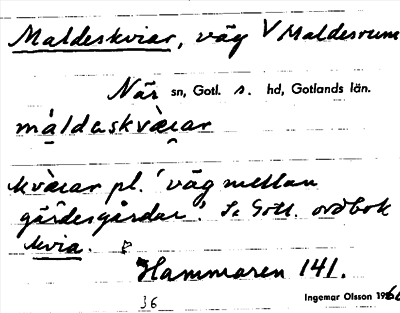 Maldeskviar, väg V Maldesrum
När sn, Gotl. s. hd, Gotlands län.
máldaskvàrar
kvàrar pl. 'väg mellan
gärdesgårdar'. Se Gotl. ordbok
kvia.
Hammaren 141.
36 Ingemar Olsson 1966